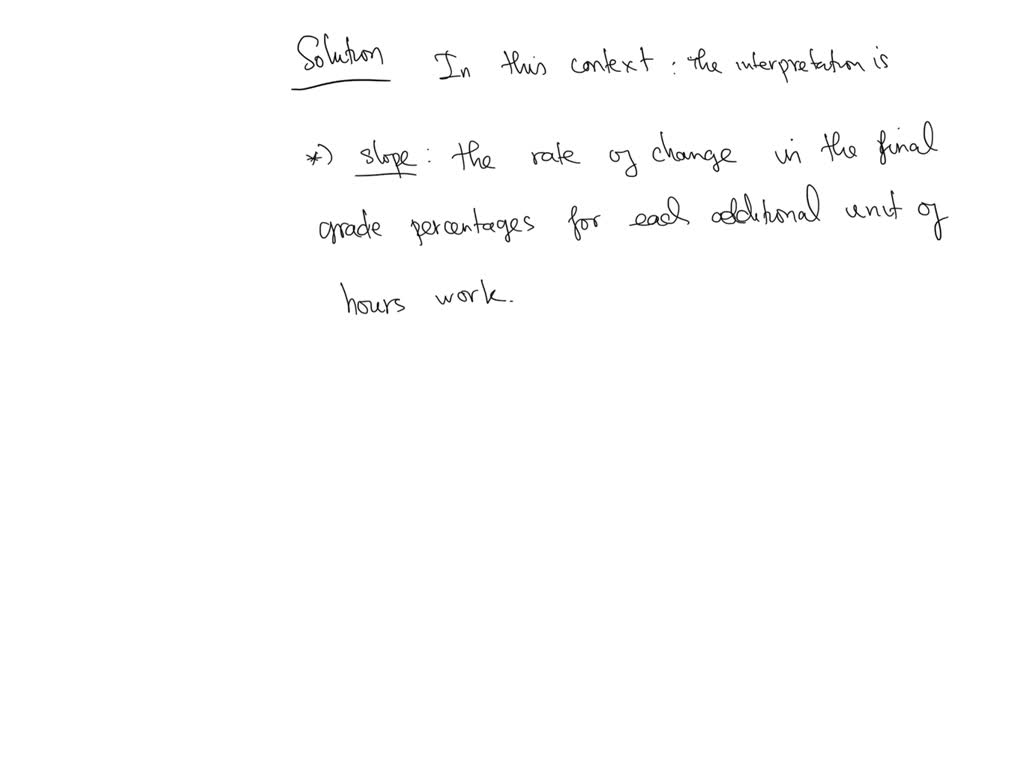 Solution In this context : the interpretation is
*) slope : the rate of change in the final
grade percentages for each additional unit of
hours work.